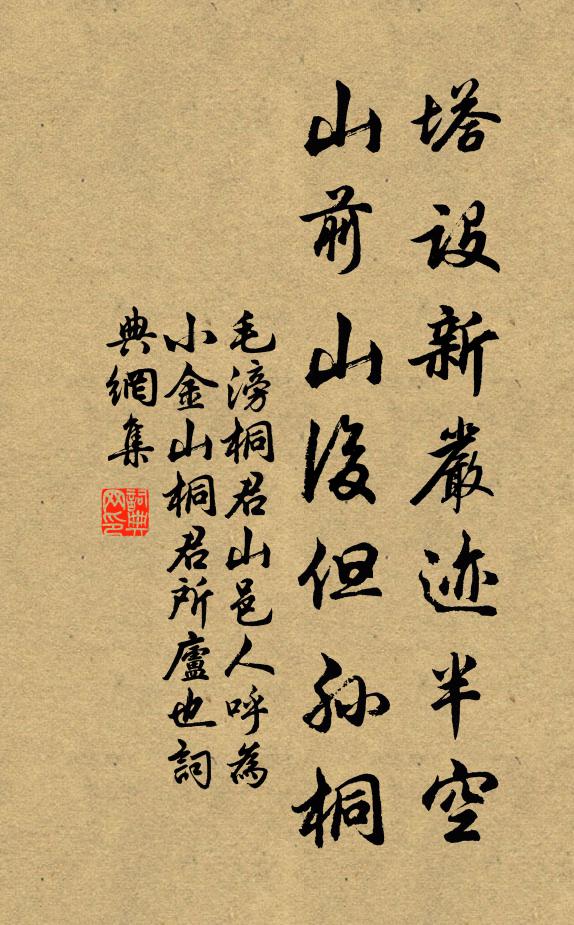 塔設新嚴迹半空
山前山後但孙桐
毛滂桐君山邑人呼為
小金山桐君所廬也詞
典網集
詞典網印